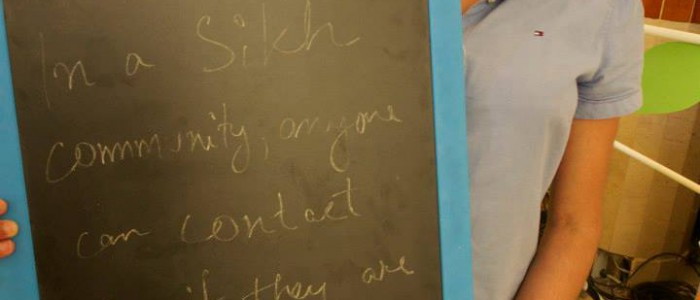 In a Sikh
community, anyone
can contact
if they are